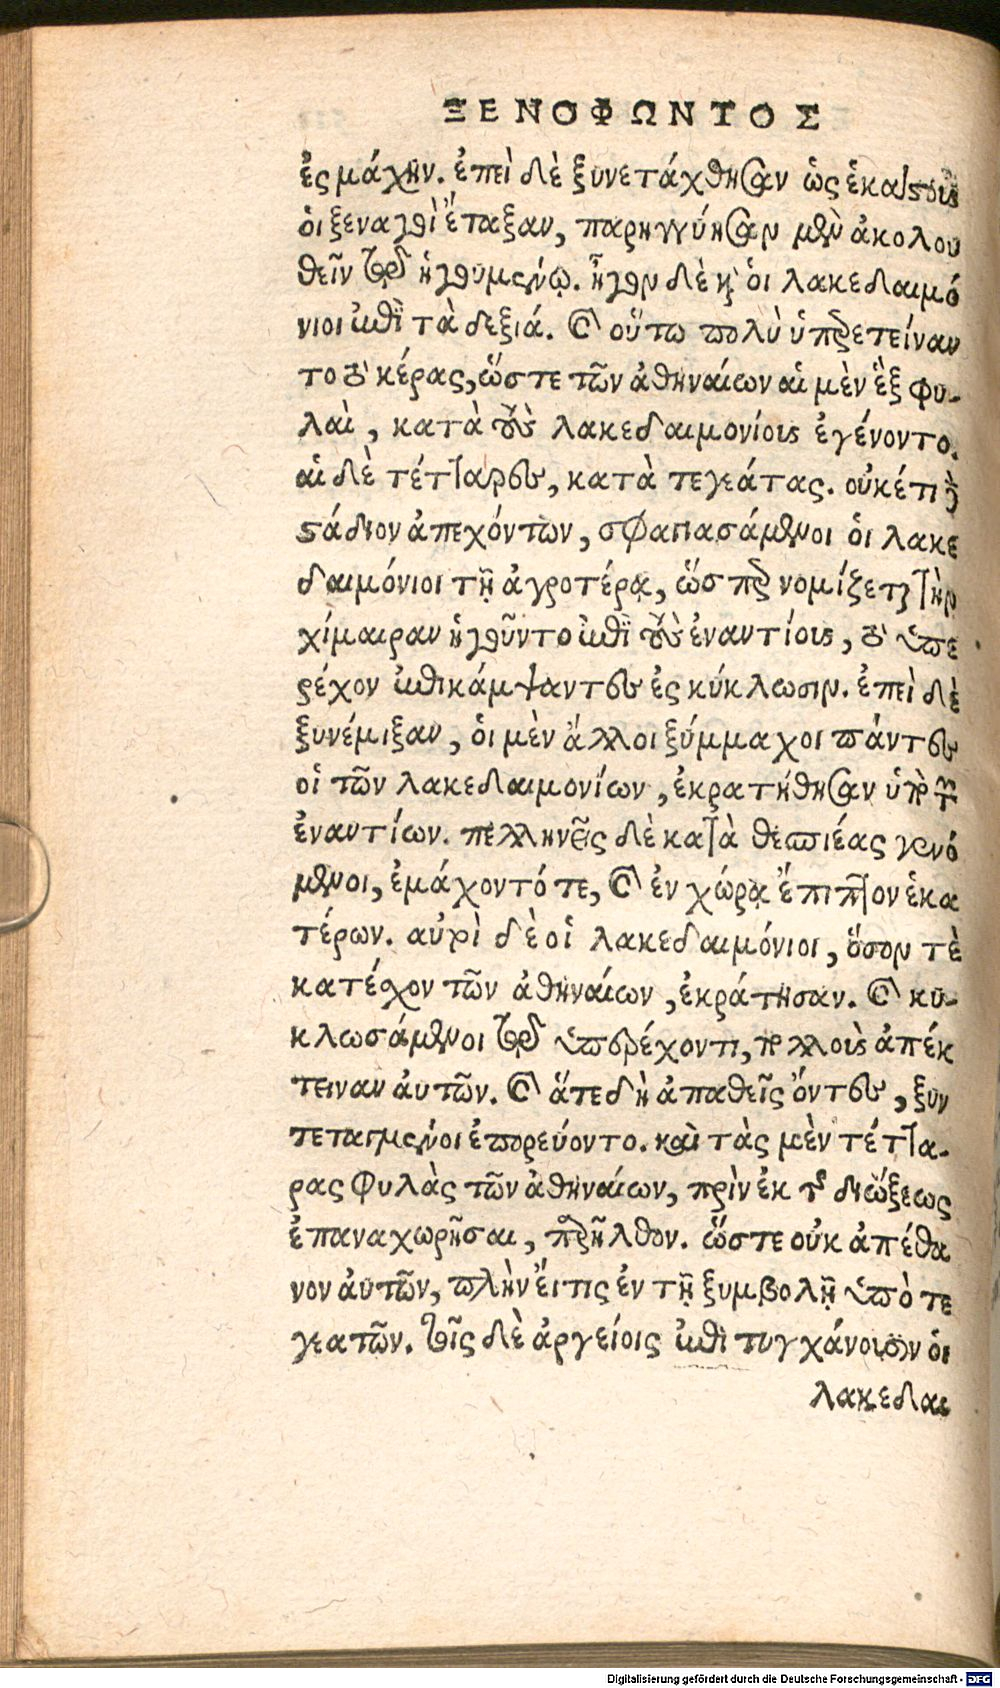 ΞΕΝΟΦΩΝΤΟΣ
ἐς μάχην. ἐπεὶ δὲ ξυνετάχθησαν ὡς ἑκάστους
οἱ ξεναγοὶ ἔταξαν, παρηγγύησαν μὲν ἀκολου
θεῖν τῷ ἡγουμένῳ. ἦγον δὲ καὶ οἱ λακεδαιμό
νιοι ἐπὶ τὰ δεξιά. καὶ οὕτω πολὺ ὑπερετείναν
το τὸ κέρας, ὥστε τῶν ἀθηναίων αἱ μὲν ἓξ φυ-
λαὶ, κατὰ τοὺς λακεδαιμονίους ἐγένοντο.
αἱ δὲ τέτταρες, κατὰ τεγεάτας. οὐκέτι δὲ
στάδιον ἀπεχόντων, σφαγιασάμενοι οἱ λακε
δαιμόνιοι τῇ ἀγροτέρᾳ, ὥσπερ νομίζεται τὴν
χίμαιραν ἡγοῦντο ἐπὶ τοὺς ἐναντίους, τὸ ὑπε
ρέχον ἐπικάμψαντες ἐς κύκλωσιν. ἐπεὶ δὲ
ξυνέμιξαν, οἱ μὲν ἄλλοι ξύμμαχοι πάντες
οἱ τῶν λακεδαιμονίων, ἐκρατήθησαν ὑπὸ τῶν
ἐναντίων. πελληνεῖς δὲ κατὰ θεσπιέας γενό
μενοι, ἐμάχοντό τε, καὶ ἐν χώρᾳ ἔπιπτον ἑκα
τέρων. αὐτοὶ δὲ οἱ λακεδαιμόνιοι, ὅσον τὲ
κατέσχον τῶν ἀθηναίων, ἐκράτησαν. καὶ κυ-
κλωσάμενοι τῷ ὑπερέχοντι, πολλοὺς ἀπέκ
τειναν αὐτῶν. καὶ ἅτε δὴ ἀπαθεῖς ὄντες, ξυν
τεταγμένοι ἐπορεύοντο. καὶ τὰς μὲν τέττα-
ρας φυλὰς τῶν ἀθηναίων, πρὶν ἐκ τῆς διώξεως
ἐπαναχωρῆσαι, παρῆλθον. ὥστε οὐκ ἀπέθα
νον αὐτῶν, πλὴν εἴ τις ἐν τῇ ξυμβολῇ ὑπὸ τε
γεατῶν. τοῖς δὲ ἀργείοις ἐπιτυγχάνουσιν οἱ
λακεδαι
Digitalisierung gefördert durch die Deutsche Forschungsgemeinschaft - DFG